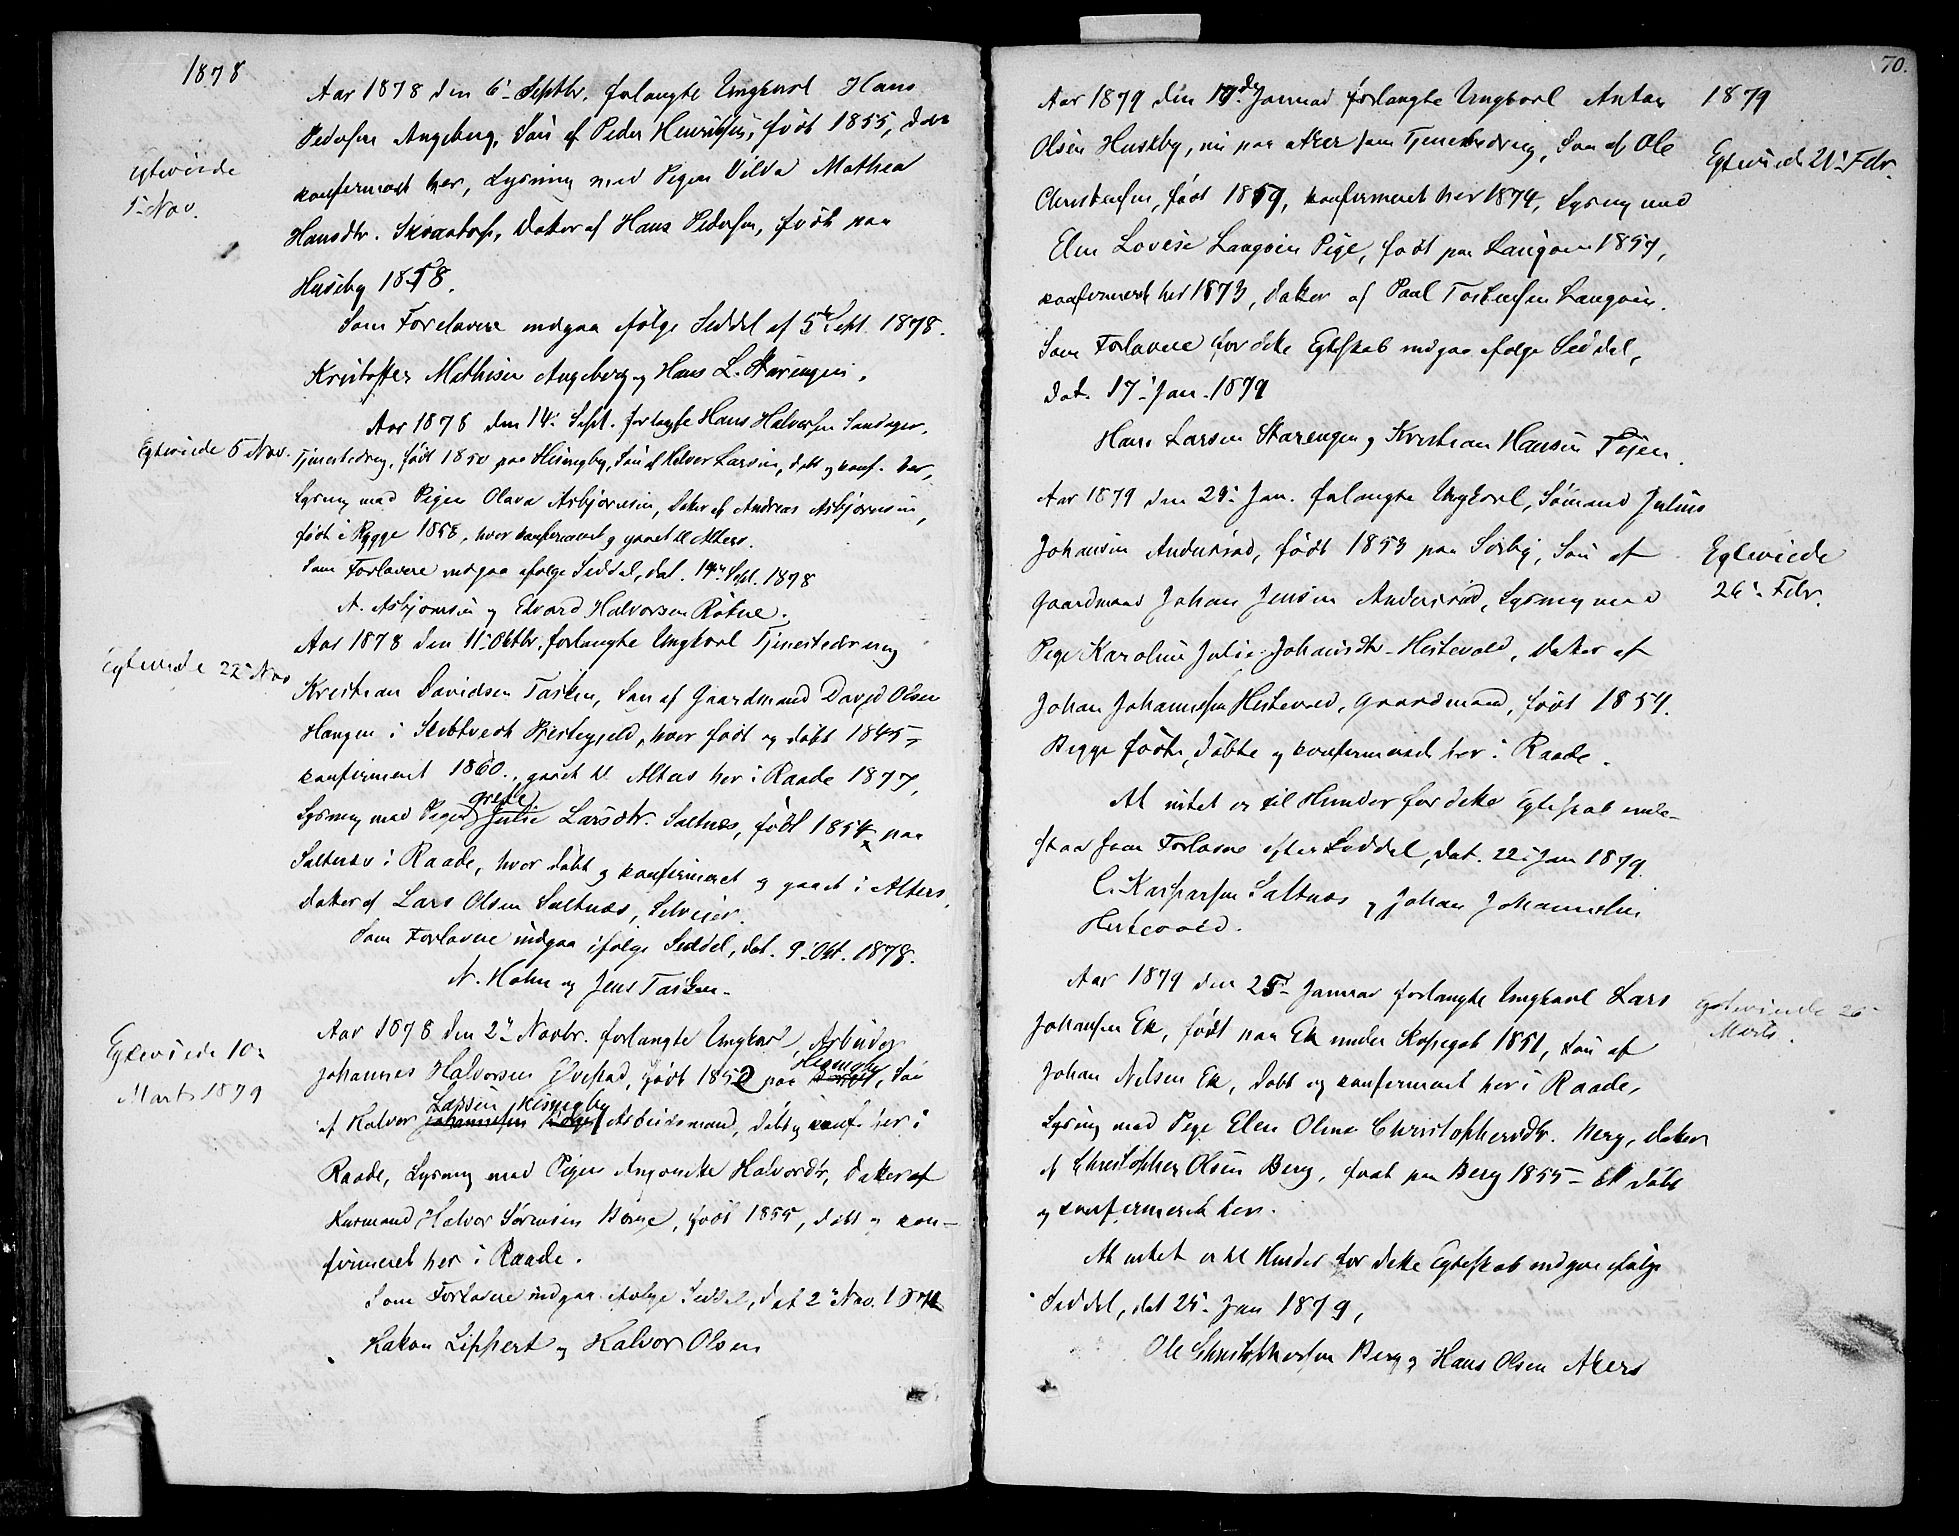 1878
Aar 1878 den 6' Septbr. forlangte Ungkarl Hans
Pedersen Angeberg, Søn af Peder Henriksen, født 1855, døbt
Egteviede
5' Nov.
konfirmert her, Lysning med Pigen Vilda Mathea
Hansdtr. Skraatorp, Dater af Hans Pedersen, født paa
Huseby 1858.
Som Forlovere indgaa ifølge Seddel af 5' Sept. 1878.
Kristoffer Mathisen Angeberg og Hans L. Starengen.
Aar 1878 den 14' Sept. forlangte Hans Halvorsen
Egteviede 5 Nov.
Tjenestedreng, født 1850 paa Hesnegby, Søn af Halvor Larsen, døbt og konf. her,
Lysning med Pigen Olava Asbjørnsen, Dater af Andreas Asbjørnsen,
født i Rygge 1858, hvor konfirmeret og gaaet til Alters.
Som Forlovere indgaa ifølge Seddel, dat. 14' Sept. 1878
A. Asbjørnsen og Edvard Halvorsen Røkne.
Aar 1878 den 11' Oktbr. forlangte Ungkarl Tjenestedreng
Egteviede 22' Nov
Kristian Davidsen Tasken, Søn af Gaardmand David Olsen
Haugen i Skibtvedt Præstegjeld, hvor født og døbt 1845,
konfirmeret 1860., gaaet til Alters her i Raade 1877,
Lysning med Pigen Julie Grethe Larsdtr. Saltnæs, født 1854 paa
Saltnæs i Raade, hvor døbt og konfirmeret og gaaet i Alters,
Dater af Lars Olsen Saltnæs, Selveier.
Som Forlovere indgaa ifølge Seddel, dat. 9' Okt. 1878.
N. Holm og Jens Tasken.
Aar 1878 den 2' Novbr. forlangte Ungkarl, Arbeider
Egteviede 10'
Marts 1879
Johannes Halvorsen Ovestad, født 1852 paa Hesnegby, Søn
af Halvor Larsen Hesnegby Arbeidsmand, døbt og konf. her i
Raade, Lysning med Pigen Angonette Halvorsdtr, Dater af
Husmand Halvor Sørensen Borge, født 1855, døbt og kon-
firmeret her i Raade.
Som Forlovere indgaa ifølge Seddel, dat 2' Nov. 1878
Hakon Lippert og Halvor Olsen
70.
Aar 1879 den 17de Januar forlangte Ungkarl Anton
1879
Olsen Huseby, nu paa Aker som Tjenestedreng, Søn af Ole
Egteviede 21' Febr.
Christensen, født 1859, konfirmeret her 1874, Lysning med
Elen Lovise Langøen Pige, født paa Langøen 1857,
konfirmeret her 1873, Dater af Paul Torstensen Langøen.
Som Forlovere for dette Egteskab indgaa ifølge Seddel,
dat. 17' Jan. 1879
Hans Larsen Starengen og Kristian Hansen Tøjen.
Aar 1879 den 25' Jan. forlangte Ungkarl, Sømand Julius
Johansen Andersrød, født 1853 paa Sørby, Søn af
Egteviede
26' Febr.
Gaardmand Johan Jensen Andersrød, Lysning med
Pige Karoline Julie Johansdtr. Hestevold, Dater af
Johan Johannesen Hestevold, Gaardmand, født 1854.
Begge fødte, døbte og konfirmerede her i Raade.
At intet er til Hinder for dette Egteskab inde-
staa som Forlovere efter Seddel, dat. 22' Jan 1879.
C. Kaspersen Saltnæs og Johan Johannesen
Hestevold.
Aar 1879 den 25' Januar forlangte Ungkarl Lars
Egteviede 26'
Marts.
Johansen Ek, født paa Ek under Kopegab 1851, Søn af
Johan Nilsen Ek, døbt og konfirmeret her i Raade,
Lysning med Pige Elen Oline Christophersdtr. Berg, Dater
af Christopher Olsen Berg, født paa Berg 1855 døbt
og konfirmeret her.
At intet er til Hinder for dette Egteskab indgaa ifølge
Seddel, dat 25' Jan 1879,
Ole Christophersen Berg og Hans Olsen Akers